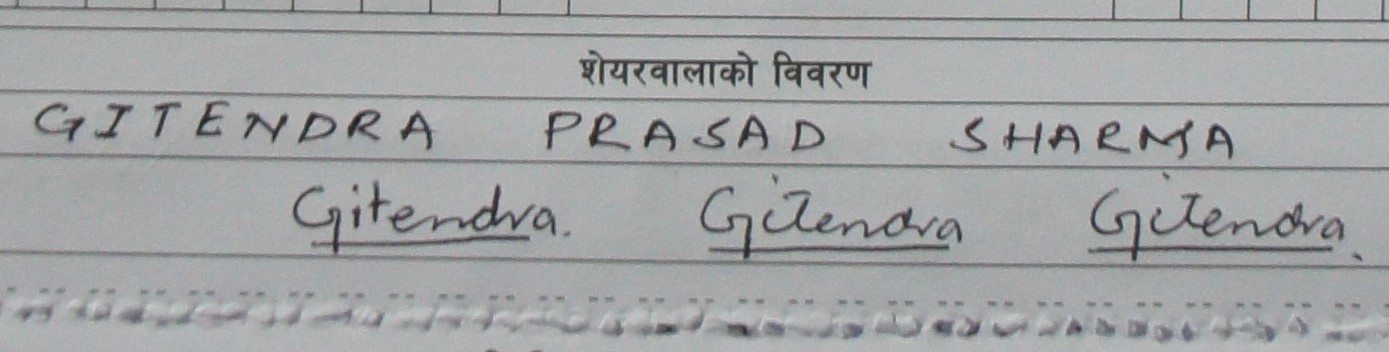 शेयरवालाको विवरण
GITENDRA PRASAD SHARMA
Gitendra. Gitendra Gitendra.